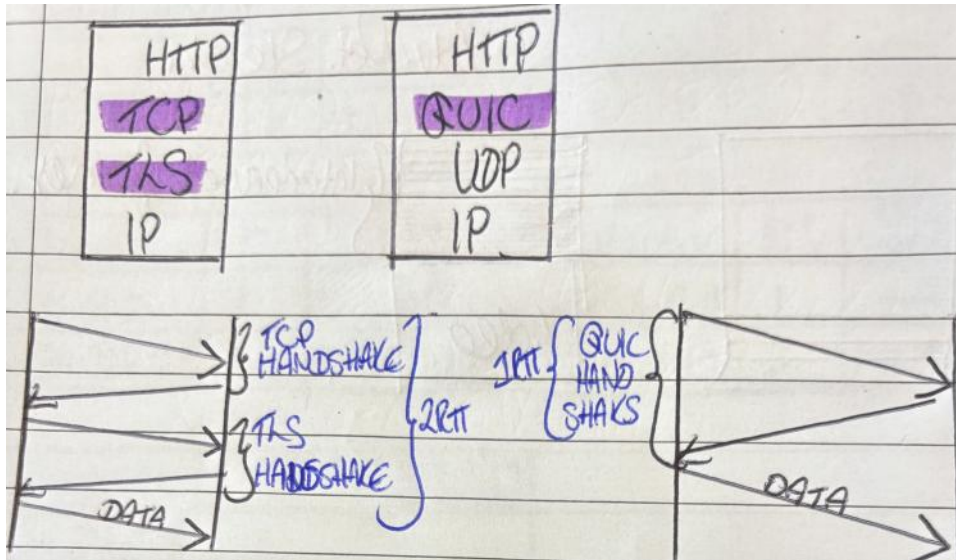 HTTP
TCP
TLS
IP
HTTP
QUIC
UDP
IP
TCP
HANDSHAKE
TLS
HANDSHAKE
2RTT
DATA
1RTT
QUIC
HAND
SHAKS
DATA